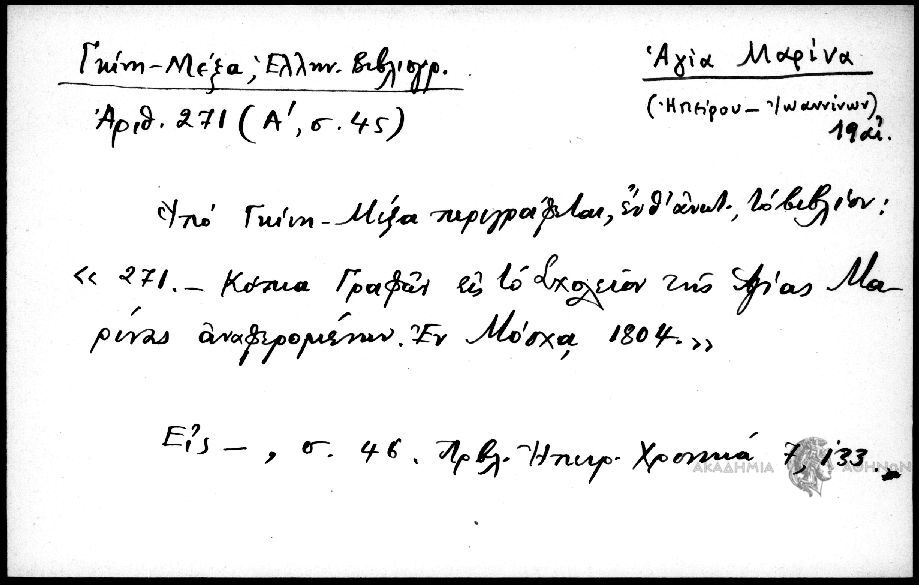 Γκίνη-Μέξα, Ἑλλην. Βιβλιογρ.
Ἀριθ. 271 (Α', σ. 45)
Ἁγία Μαρίνα
(Ἠπείρου - Ἰωαννίνων)
19α.
Ὑπό Γκίνη-Μέξα περιγράφεται, ἔνθ' ἀνωτ., τό βιβλίον:
« 271. - Κόπια Γραφῶν εἰς τό Σχολεῖον τῆς Ἁγίας Μα-
ρίνας ἀναφερομένων. Ἐν Μόσχᾳ 1804. »
Εἰς - , σ. 46. Πρβλ. Ἠπειρ. Χρονικά 7, 133.
ΑΚΑΔΗΜΙΑ ΑΘΗΝΩΝ